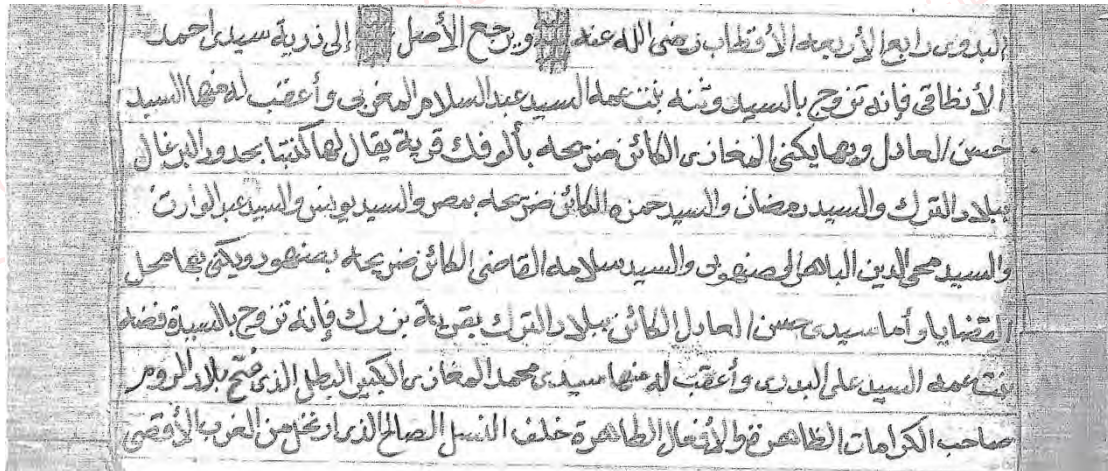 البدوى رابع الأربعه الأقطاب رضى الله عنه ويرجع الأصل إلى ذرية سيدى احمد
الأنطاقى فإنه تزوج بالسيده تنه بنت عمه السيد عبد السلام المغربى وأعقب له منها السيد
حسن العادل وبها يكنى المغازى الكائن ضريحه بألوفك قرية يقال لها كنتبا بحدود البرغال
ببلاد الترك والسيد رمضان والسيد حمزه الكائن ضريحه بمصر والسيد يونس والسيد عبد الوارث
والسيد محى الدين الباهى الصنهورى والسيد سلامه القاضى الكائن ضريحه بصنهور ويكنى بها محل
القضايا وأما سيدى حسن العادل الكائن ببلاد الترك بقرية بزرك فإنه تزوج بالسيدة فضه
بنت عمه السيد على البدرى وأعقب له منها سيدى محمد المغازى الكبير البطل الذى فتح بلاد الروم
صاحب الكرامات الظاهرة والأفعال الطاهرة خلف النسل الصالح الذى ارتحل من الغرب الأقصى